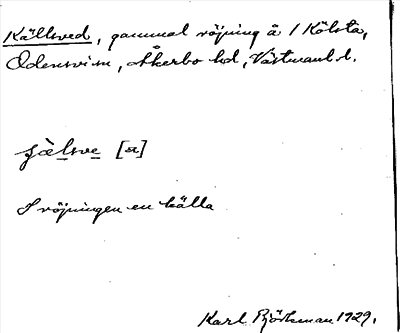 Källsved, gammal röjning å 1 Kölsta,
Odensvi sn, Åkerbo hd, Västmanl. l.
jälsve [a]
I röjningen en källa
Karl Björkman 1929.